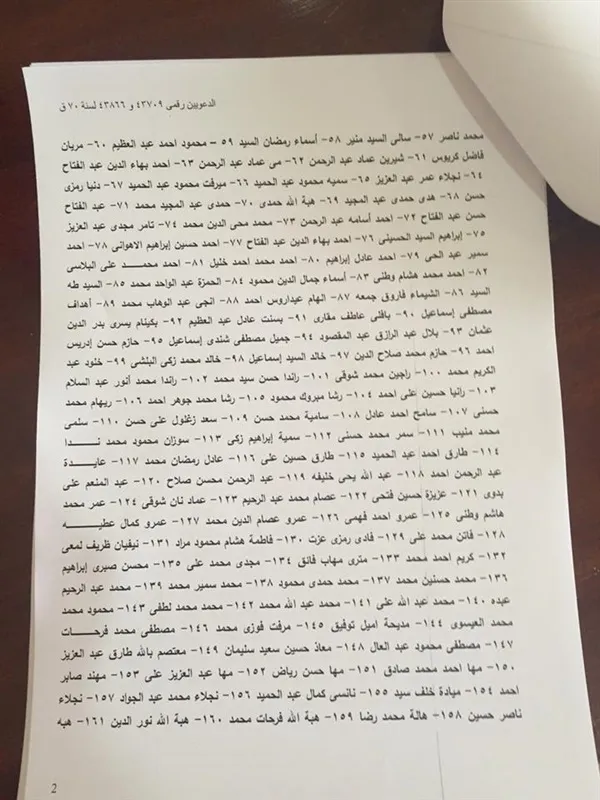 الدعويين رقمى ٤٣٧٠٩ و ٤٣٨٦٦ لسنة ٧٠ ق
محمد ناصر ٥٧- سالى السيد منير ٥٨- أسماء رمضان السيد ٥٩ – محمود احمد عبد العظيم ٦٠- مريان
فاضل كريوس ٦١- شيرين عماد عبد الرحمن ٦٢- مى عماد عبد الرحمن ٦٣- احمد بهاء الدين عبد الفتاح
٦٤- نجلاء عمر عبد العزيز ٦٥- سميه محمود عبد الحميد ٦٦- ميرفت محمود عبد الحميد ٦٧- دنيا رمزى
حسن ٦٨- هدى حمدى عبد المجيد ٦٩- هبة الله حمدى ٧٠- حمدى عبد المجيد محمد ٧١- عبد الفتاح
حسن عبد الفتاح ٧٢- احمد أسامه عبد الرحمن ٧٣- محمد محى الدين محمد ٧٤- تامر مجدى عبد العزيز
٧٥- إبراهيم السيد الحسينى ٧٦- احمد بهاء الدين عبد الفتاح ٧٧- احمد حسين إبراهيم الاهوانى ٧٨- احمد
سمير عبد الحى ٧٩- احمد عادل إبراهيم ٨٠- احمد محمد احمد خليل ٨١- احمد محمـــد على البلاسى
٨٢- احمد محمد هشام وطنى ٨٣- أسماء جمال الدين محمود ٨٤- الحمزة عبد الواحد محمد ٨٥- السيد طه
السيد ٨٦- الشيماء فاروق جمعه ٨٧- الهام عيداروس احمد ٨٨- انجى عبد الوهاب محمد ٨٩- أهداف
مصطفى إسماعيل ٩٠- باقلى عاطف مقارى ٩١- بسنت عادل عبد العظيم ٩٢- بكينام يسرى بدر الدين
عثمان ٩٣- بلال عبد الرازق عبد المقصود ٩٤- جميل مصطفى شندى إسماعيل ٩٥- حازم حسن إدريس
احمد ٩٦- حازم محمد صلاح الدين ٩٧- خالد السيد إسماعيل ٩٨- خالد محمد زكى البلشى ٩٩- خلود عبد
الكريم محمد ١٠٠- راجين محمد شوقى ١٠١- راندا حسن سيد محمد ١٠٢- راندا محمد أنور عبد السلام
١٠٣- رانيا حسين على احمد ١٠٤- رشا مبروك محمود ١٠٥- رشا محمد جوهر احمد ١٠٦- ريهام محمد
حسنى ١٠٧- سامح احمد عادل ١٠٨- سامية محمد حسن ١٠٩- سعد زغلول على حسن ١١٠- سلمى
محمد منيب ١١١- سمر محمد حسنى ١١٢- سمية إبراهيم زكى ١١٣- سوزان محمود محمد نـــدا
١١٤- طارق احمد عبد الحميد ١١٥- طارق حسين على ١١٦- عادل رمضان محمد ١١٧- عايـــدة
عبد الرحمن احمد ١١٨- عبد الله يحى خليفه ١١٩- عبد الرحمن محسن صلاح ١٢٠- عبد المنعم على
بدوى ١٢١- عزيزة حسين فتحى ١٢٢- عصام محمد عبد الرحيم ١٢٣- عماد نان شوقى ١٢٤- عمر محمد
هاشم وطنى ١٢٥- عمرو احمد فهمى ١٢٦- عمرو عصام الدين محمد ١٢٧- عمرو كمال عطيـــه
١٢٨- فاتن محمد على ١٢٩- فادى رمزى عزت ١٣٠- فاطمة هشام محمود مراد ١٣١- نيفيان ظريف لمعى
١٣٢- كريم احمد محمد ١٣٣- مترى مهاب فائق ١٣٤- مجدى محمد على ١٣٥- محسن صبرى إبراهيم
١٣٦- محمد حسنين محمد ١٣٧- محمد حمدى محمود ١٣٨- محمد سمير محمد ١٣٩- محمد عبد الرحيم
عبده ١٤٠- محمد عبد الله على ١٤١- محمد عبد الله محمد ١٤٢- محمد محمد لطفى ١٤٣- محمود محمد
محمد العيسوى ١٤٤- مديحة اميل توفيق ١٤٥- مرفت فوزى محمد ١٤٦- مصطفى محمد فرحـــات
١٤٧- مصطفى محمود عبد العال ١٤٨- معاذ حسين سعيد سليمان ١٤٩- معتصم بالله طارق عبد العزيز
١٥٠- مها احمد محمد صادق ١٥١- مها حسن رياض ١٥٢- مها عبد العزيز على ١٥٣- مهند صابر
احمد ١٥٤- ميادة خلف سيد ١٥٥- نانسى كمال عبد الحميد ١٥٦- نجلاء محمد عبد الجواد ١٥٧- نجلاء
ناصر حسين ١٥٨- هالة محمد رضا ١٥٩- هبة الله فرحات محمد ١٦٠- هبة الله نور الدين ١٦١- هبه
2